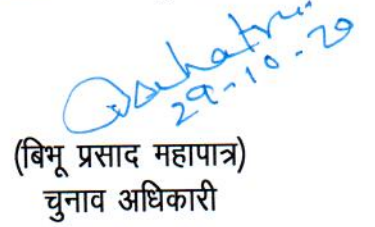 29-10-20
(बिभू प्रसाद महापात्र)
चुनाव अधिकारी